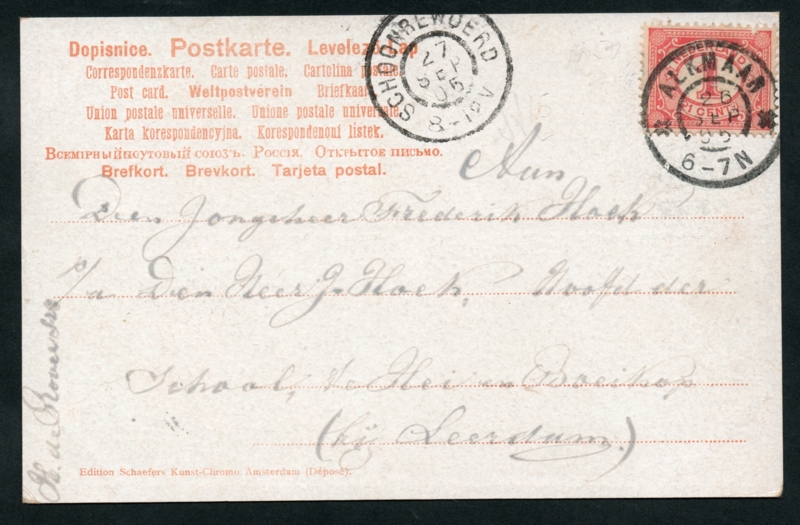 Dopisnice. Postkarte. Levelező-Lap
Correspondenzkarte. Carte postale. Cartolina postale
Post card. Weltpostverein Briefkaart
Union postale universelle. Unione postale universale
Karta korespondencyjna. Korespondenoni listek.
Всемірныйпоутовый союзъ. Россія. Открытое письмо.
Brefkort. Brevkort. Tarjeta postal.
SCHOONREWOERD
7
8-12V
NEDERLAND
1
CENT
ALKMAAR
26
SEP
05
6-7N
Aan
Den Jongeheer Frederik Hoek
p/a Den Heer J. Hoek, Hoofd der
School, te Hei en Boeikop
(bij Leerdam.)
H. de
Edition Schaefers Kunst-Chromo. Amsterdam (Déposé).